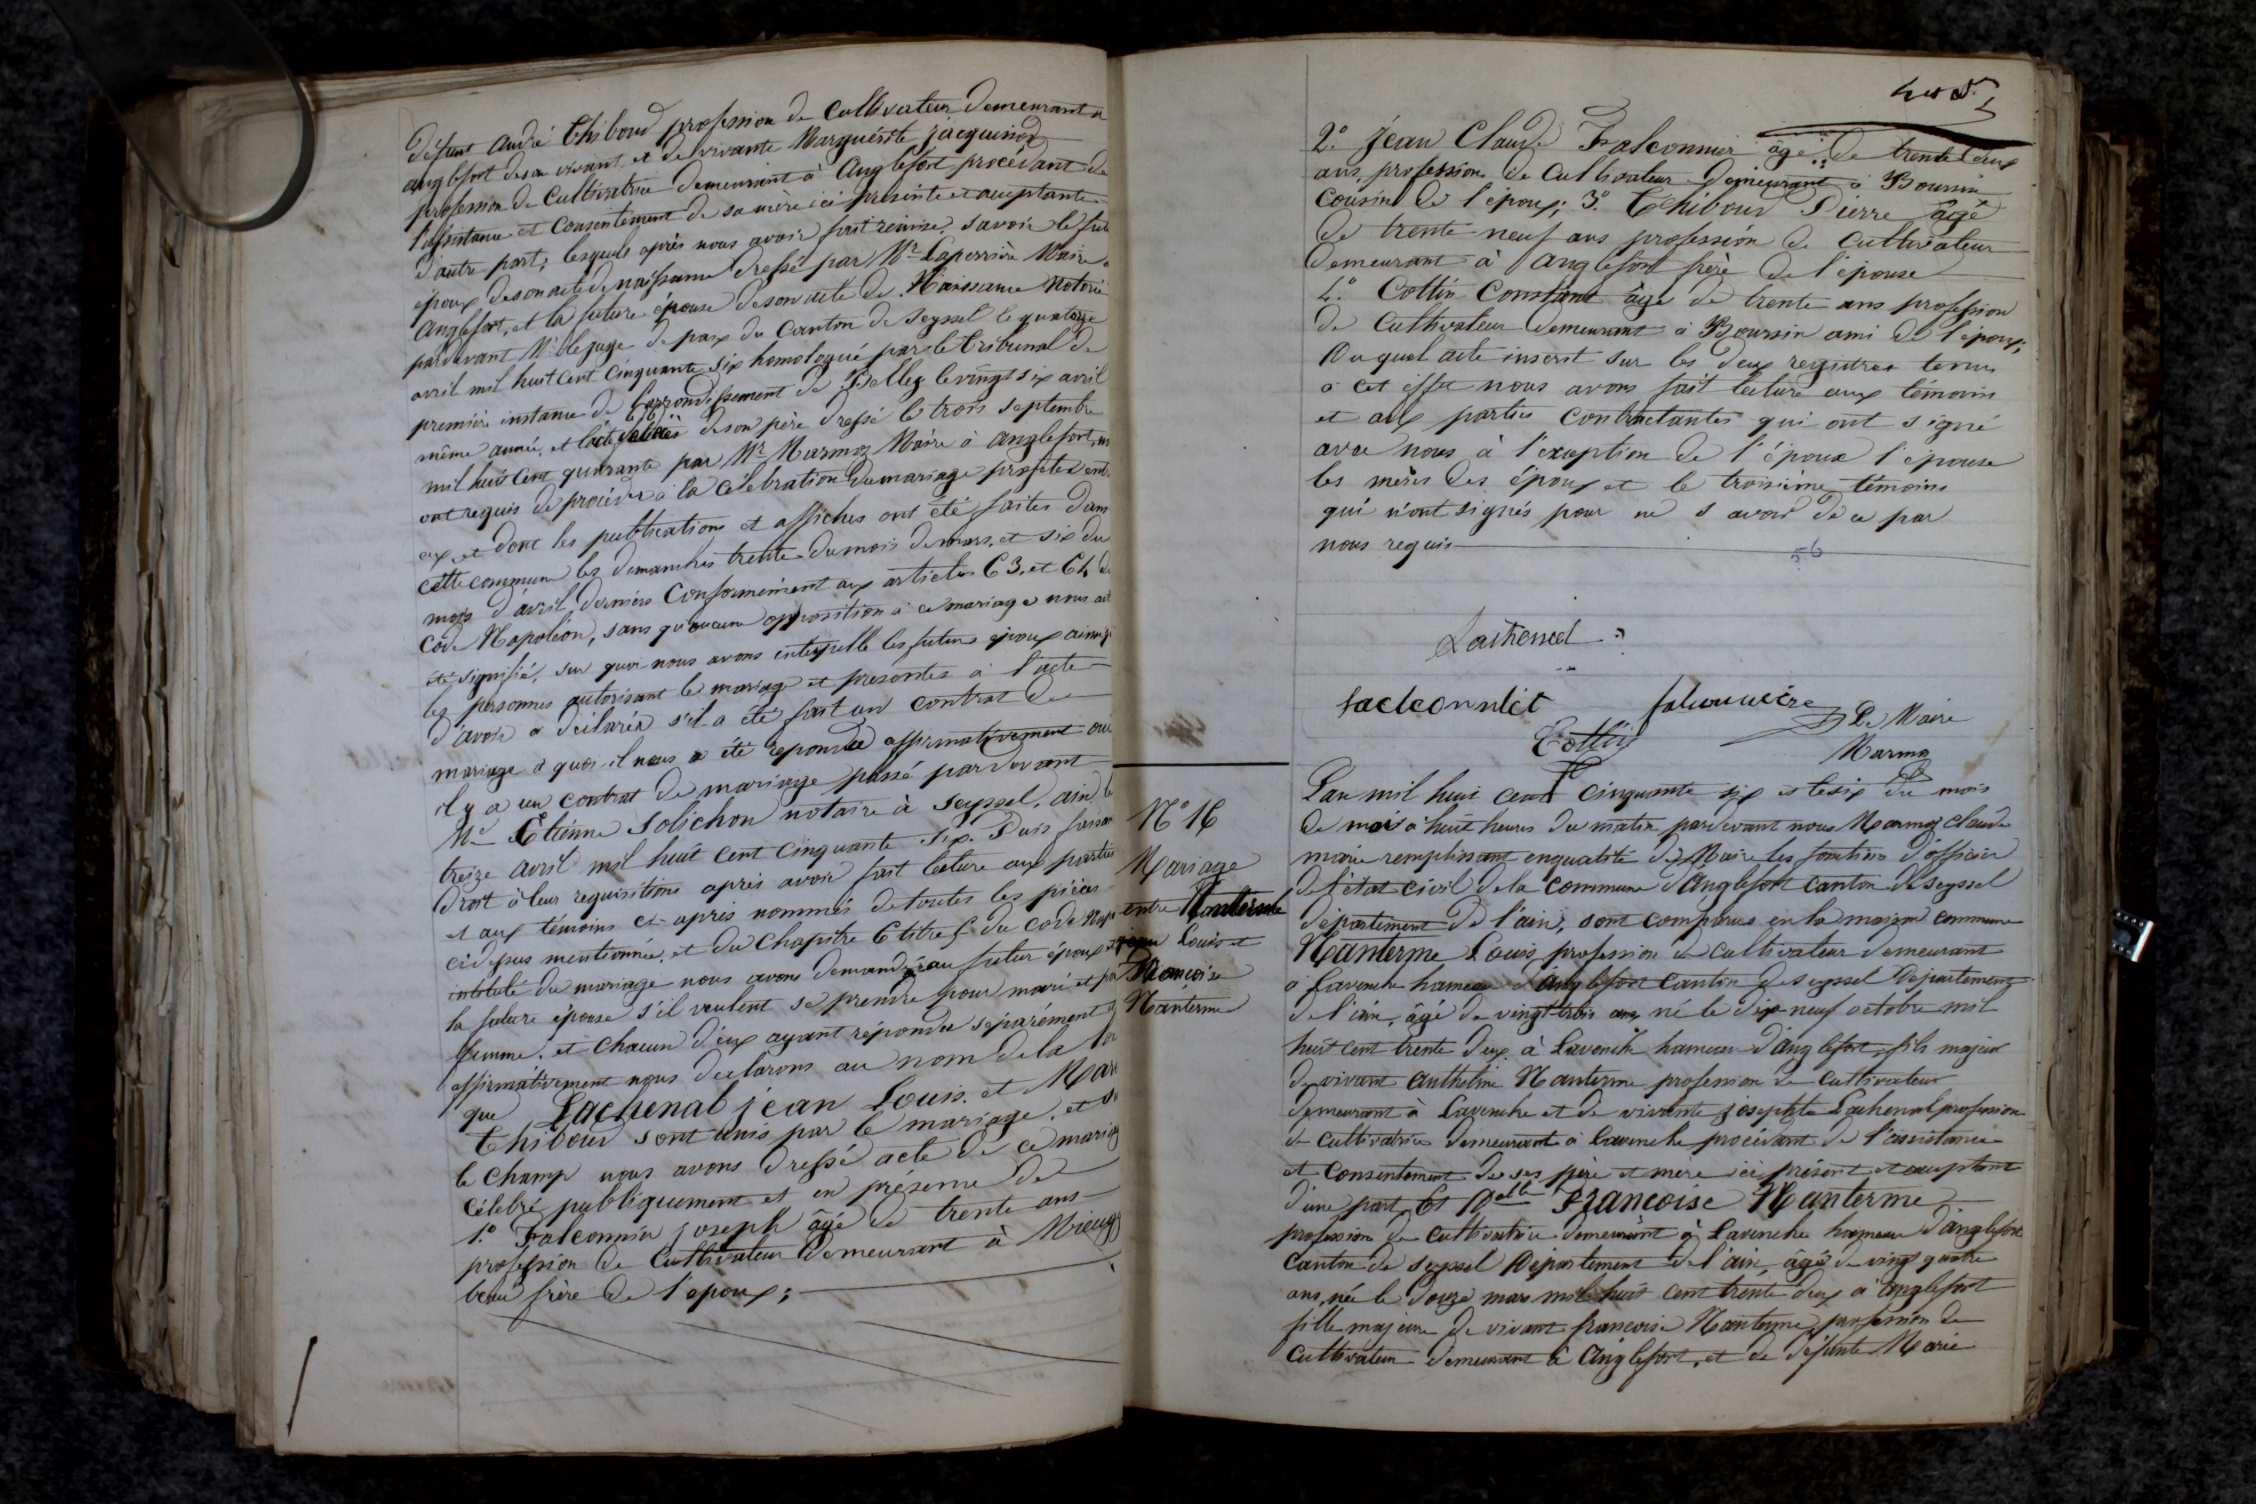 défunt André Thiboud profession de Cultivateur demeurant à
anglefort de son vivant et de vivante Marguérite jacquinod
profession de Cultivatrice demeurant à Anglefort procédant de
l'assistance et Consentement de sa mère ici présente et acceptante
d'autre part; lesquels après nous avoir fait remise, savoir le futur
époux de son acte de naissance dressé par Mr Laperrière Maire
Anglefort, et la future épouse de son acte de Naissance Notorié
pardevant Mr le juge de paix du Canton de Seyssel le quatorze
avril mil huit cent cinquante six homologué par le tribunal de
première instance de l'arrondissement de Belley le vingt six avril
même année, et l'acte de décès de son père dressé le trois septembre
mil huit cent quarante par Mr Marmoz Maire à anglefort, nous
ont requis de procéder à la célébration du mariage projeté entre
eux et dont les publications et affiches ont été faites dans
cette commune les dimanches trente du mois de mars, et six du
mois d'avril, derniers Conformément aux articles 63, et 64 du
Code Napoléon, sans qu'aucune opposition à ce mariage nous ait
été signifié, sur quoi nous avons interpellé les futurs époux ainsi que
les personnes autorisant le mariage et présentes à l'acte
d'avoir à déclarer s'il a été fait un contrat de
mariage à quoi il nous a été répondu affirmativement oui
il y a un contrat de mariage passé pardevant
Me Etienne Solichon notaire à Seyssel, ain, le
treize avril mil huit cent cinquante six. Puis faisant
droit à leur requisitions après avoir fait lecture aux parties
et aux témoins ci-après nommés de toutes les pièces
cidessus mentionnée, et du chapitre 6 titre 5 du code Nap
intitulé du mariage nous avons demandé au futur époux et
la future épouse s'il veulent se prendre pour mari et pour
femme, et chacun d'eux ayant répondu séparément et
affirmativement nous déclarons au nom de la loi
que Lachenal jean Louis et Marie
Thiboud sont unis par le mariage, et sur
le champ nous avons dressé acte de ce mariage
célébré publiquement et en présence de
1.° Falconnier joseph âgé de trente ans
profession de Cultivateur demeurant à
beau frère de l'époux;
2.° Jean Claude Falconnier âgé de trente deux
ans, profession de Cultivateur demeurant à Boursin
cousin de l'époux; 3.° Thiboud Pierre âgé
de trente neuf ans profession de Cultivateur
demeurant à Anglefort frère de l'épouse
4.° Cottin Constant âgé de trente ans profession
de Cultivateur demeurant à Boursin ami de l'époux;
Duquel acte inscrit sur les deux registres tenu
à cet effet nous avons fait lecture aux témoins
et aux parties Contractantes qui ont signé
avec nous à l'exception de l'époux l'épouse
les mères des époux et le troisième témoins
qui n'ont signés pour ne savoir de ce par
nous requis
56
Cottin
Le Maire
Marmoz
N° 16
Mariage
entre Nanterme
jean Louis et
Francoise
Nanterme
L'an mil huit cent cinquante six et le six du mois
de mai à huit heures du matin pardevant nous Marmoz claude
marie remplissant en qualité de Maire les fonctions d'officier
de l'état civil de la commune d'Anglefort canton de seyssel
département de l'ain, sont comparus en la maison commune
Nanterme Louis, profession de cultivateur demeurant
à Lavenche hameau d'Anglefort canton de seyssel département
de l'ain, âgé de vingt trois ans né le dix neuf octobre mil
huit cent trente deux à Lavenche hameau d'anglefort, fils majeur
de vivant Anthelme Nanterme profession de Cultivateur
demeurant à Lavenche et de vivante josephte Lachenal profession
de cultivatrice demeurant à Lavenche procédant de l'assistance
et consentement de ses père et mère ici présent et acceptant
d'une part. Et Delle Francoise Nanterme
profession de cultivatrice demeurant à Lavenche hameau d'anglefort
Canton de seyssel Département de l'ain, âgée de vingt quatre
ans, née le douze mars mil huit cent trente deux à anglefort
fille majeure de vivant francois Nanterme, profession de
Cultivateur demeurant à Anglefort, et de défunte Marie